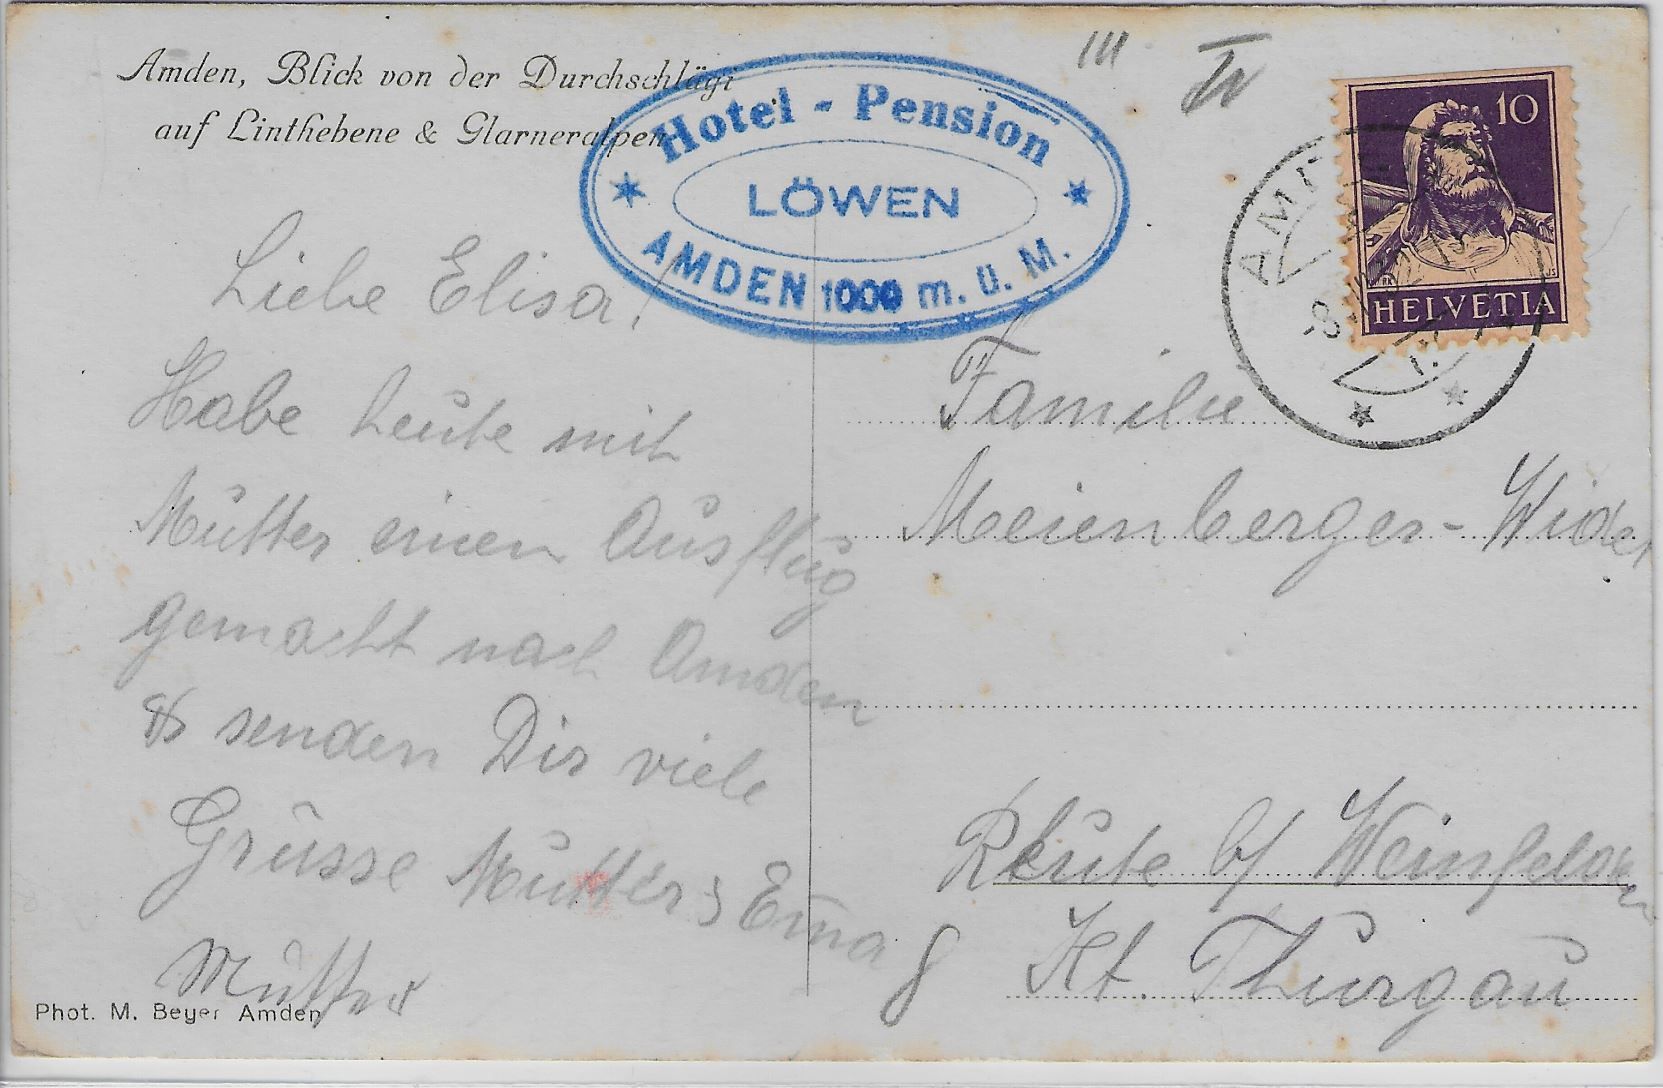 Amden, Blick von der Durchschlägi
auf Linthebene & Glarneralpen
Hotel - Pension
LÖWEN
AMDEN 1000 m. ü. M.
10
HELVETIA
Liebe Elisa!
Habe heute mit
Mutter einen Ausflug
gemacht nach Amden
& senden Dir viele
Grüsse Mutter & Erna
Mutter
Familie
Meienberger-Wider
Reute b/ Weinfelden
Kt. Thurgau
Phot. M. Beyer Amden